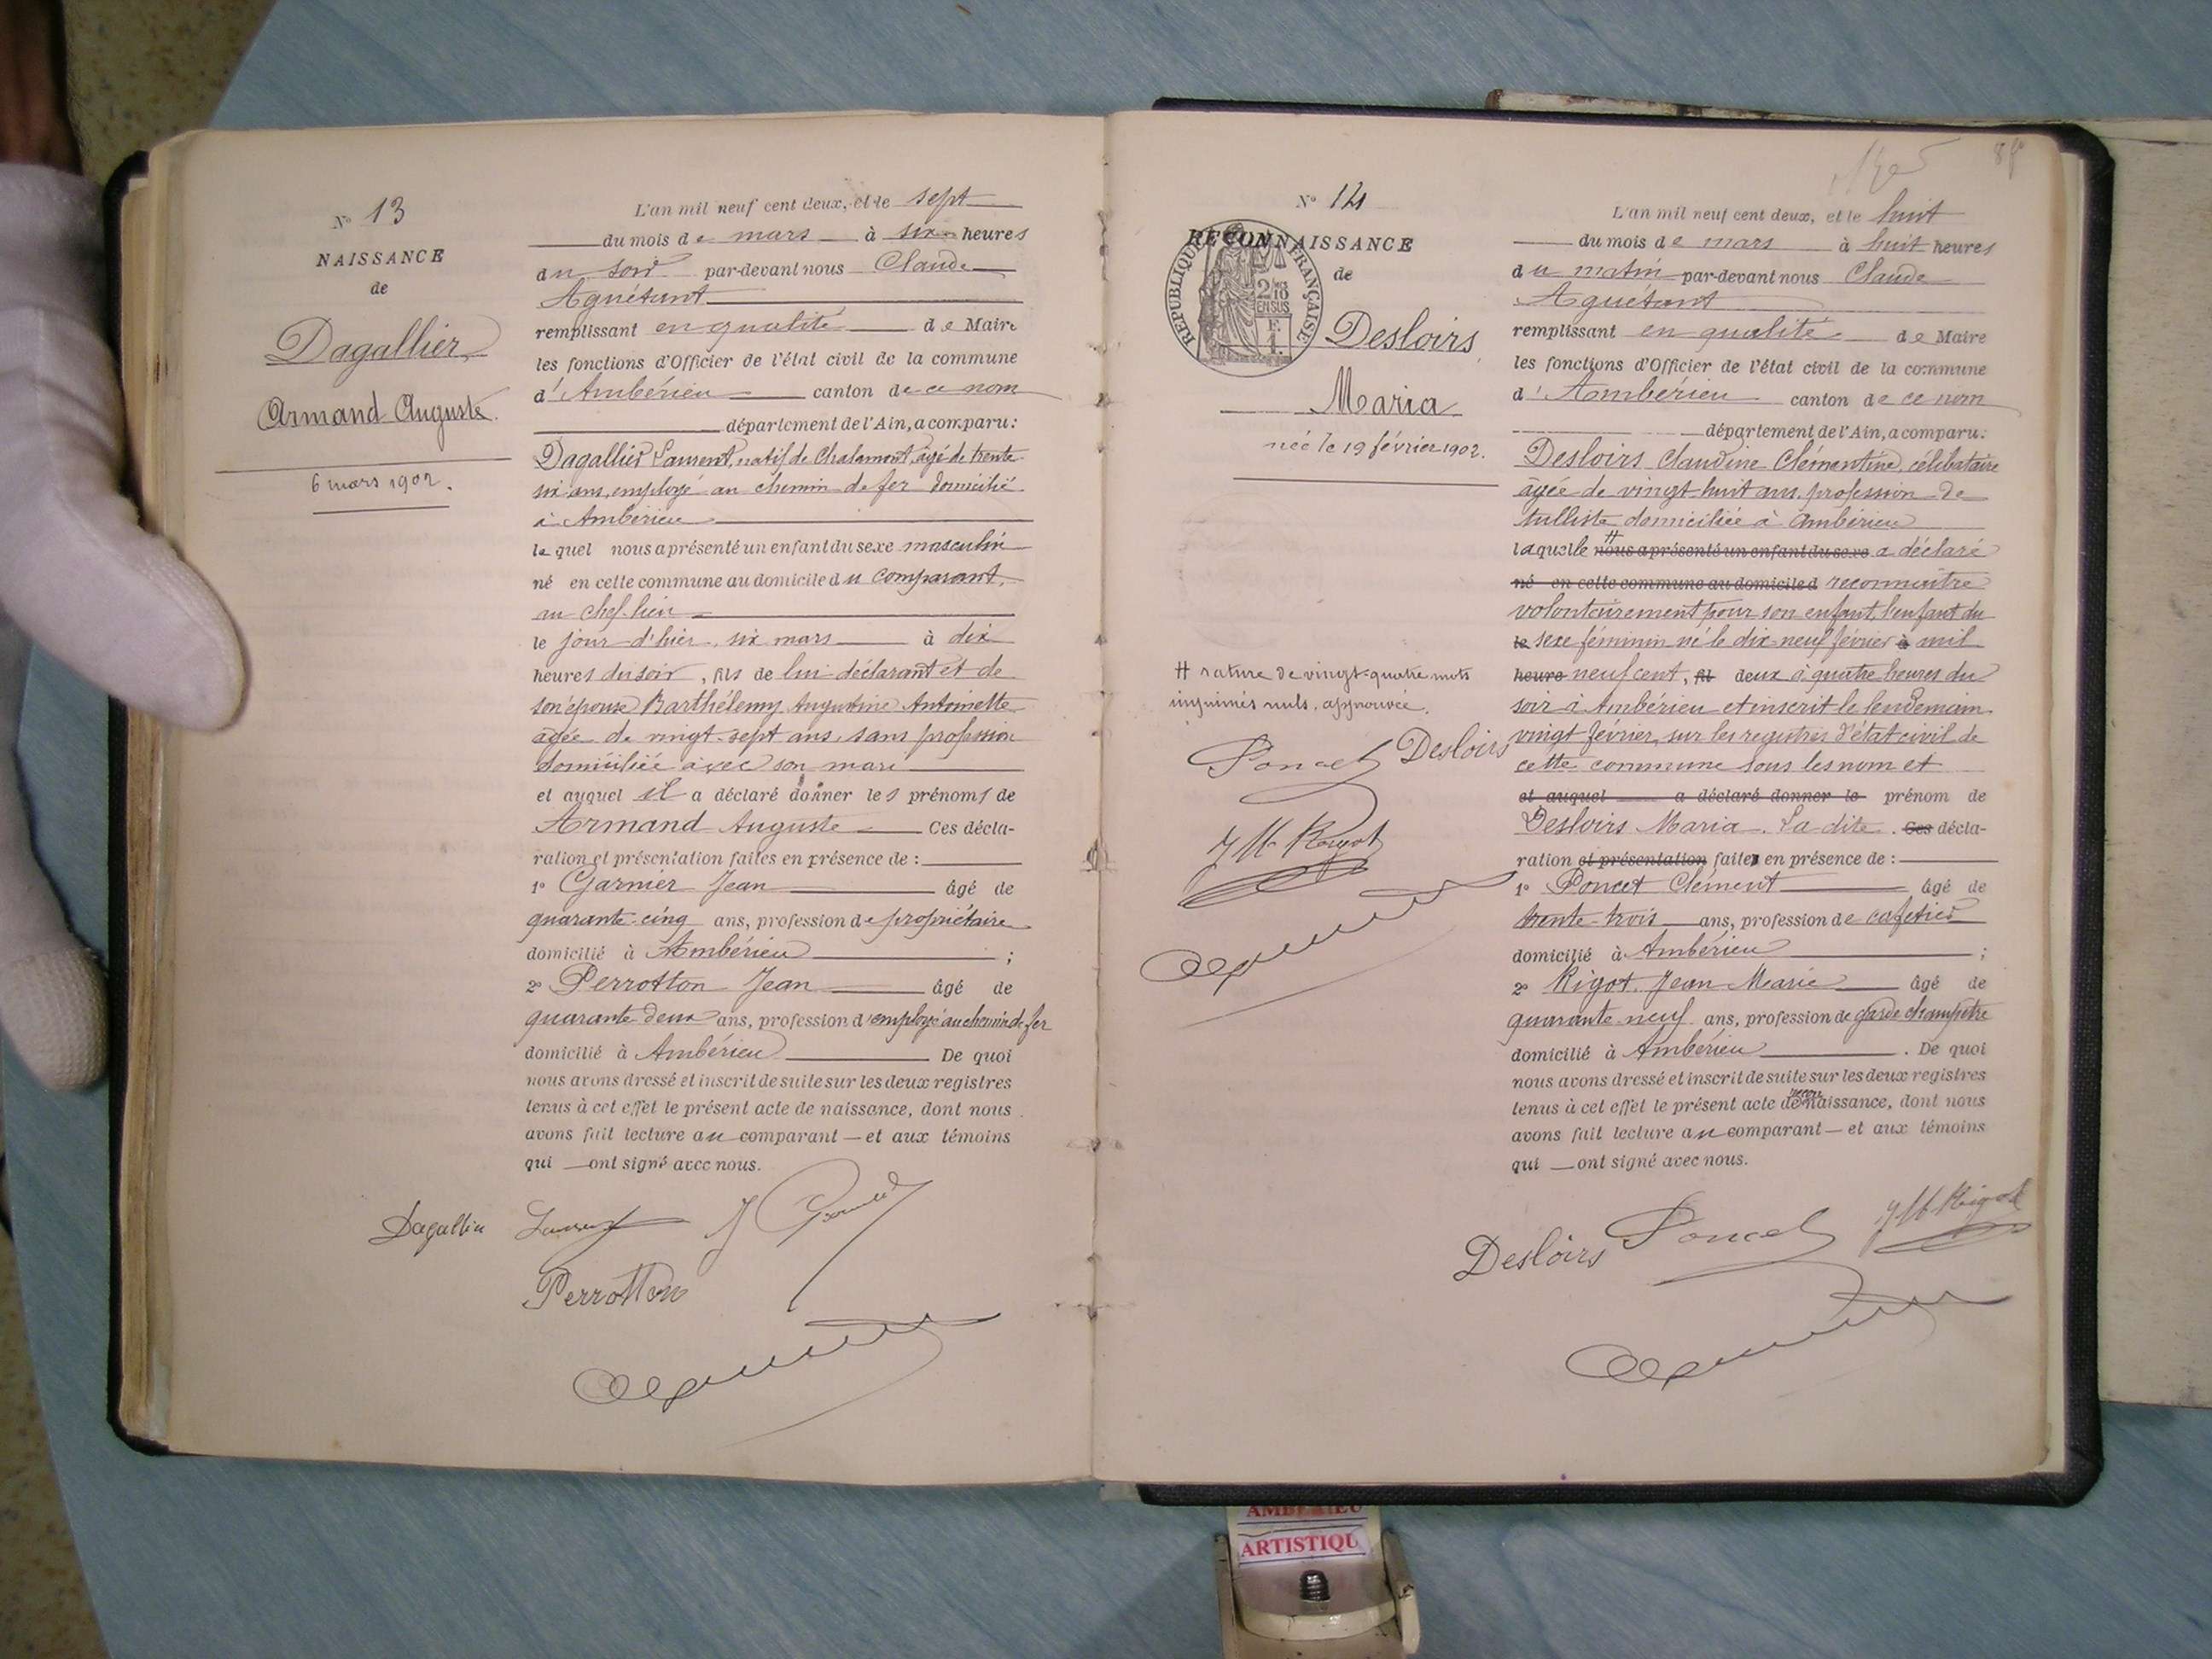 N° 13
NAISSANCE
de
Dagallier
Armand Auguste.
6 mars 1902.
L'an mil neuf cent deux, et le sept
du mois de mars à six heures
du soir par-devant nous Claude
Aguétant
remplissant en qualité de Maire
les fonctions d'Officier de l'état civil de la commune
d'Ambérieu canton de ce nom
département de l'Ain, a comparu:
Dagallier Laurent, natif de Chalamont, âgé de trente
six ans, employé au chemin de fer domicilié
à Ambérieu
lequel nous a présenté un enfant du sexe masculin
né en cette commune au domicile du comparant,
au chef-lieu
le jour d'hier, six mars à dix
heures du soir, fils de lui déclarant et de
son épouse Barthélemy Augustine Antoinette
âgée de vingt-sept ans, sans profession
domiciliée avec son mari
et auquel il a déclaré donner les prénoms de
Armand Auguste Ces décla-
ration et présentation faites en présence de :
1° Garnier Jean âgé de
quarante-cinq ans, profession de propriétaire
domicilié à Ambérieu ;
2° Perrotton Jean âgé de
quarante-deux ans, profession d'employé au chemin de fer
domicilié à Ambérieu De quoi
nous avons dressé et inscrit de suite sur les deux registres
tenus à cet effet le présent acte de naissance, dont nous
avons fait lecture au comparant — et aux témoins
qui — ont signé avec nous.
Dagallier Laurent
Perrotton
N° 14
RECONNAISSANCE
de
REPUBLIQUE FRANÇAISE
Desloirs
Maria
née le 19 février 1902.
L'an mil neuf cent deux, et le huit
du mois de mars à huit heures
du matin par-devant nous Claude
Aguétant
remplissant en qualité de Maire
les fonctions d'Officier de l'état civil de la commune
d'Ambérieu canton de ce nom
département de l'Ain, a comparu:
Desloirs Claudine Clémentine, célibataire
âgée de vingt-huit ans, profession de
tulliste domiciliée à Ambérieu
laquelle # nous a présenté un enfant du sexe a déclaré
né en cette commune au domicile d reconnaitre
volontairement pour son enfant, l'enfant du
le sexe féminin né le dix-neuf février à mil
heure neuf cent, fil deux à quatre heures du
soir à Ambérieu et inscrit le lendemain
vingt février, sur les registres d'état civil de
cette commune sous les nom et
et auquel a déclaré donner le prénom de
Desloirs Maria. La dite. Ces décla-
ration et présentation faites en présence de :
1° Poncet Clément âgé de
trente-trois ans, profession de cafetier
domicilié à Ambérieu ;
2° Rigot Jean Marie âgé de
quarante-neuf ans, profession de garde champêtre
domicilié à Ambérieu . De quoi
nous avons dressé et inscrit de suite sur les deux registres
tenus à cet effet le présent acte de naissance, dont nous
avons fait lecture au comparant — et aux témoins
qui — ont signé avec nous.
# rature de vingt-quatre mots
imprimés nuls, approuvée.
Poncet Desloirs
J M Rigot
Desloirs Poncet J M Rigot
AMBERIEU
ARTISTIQU